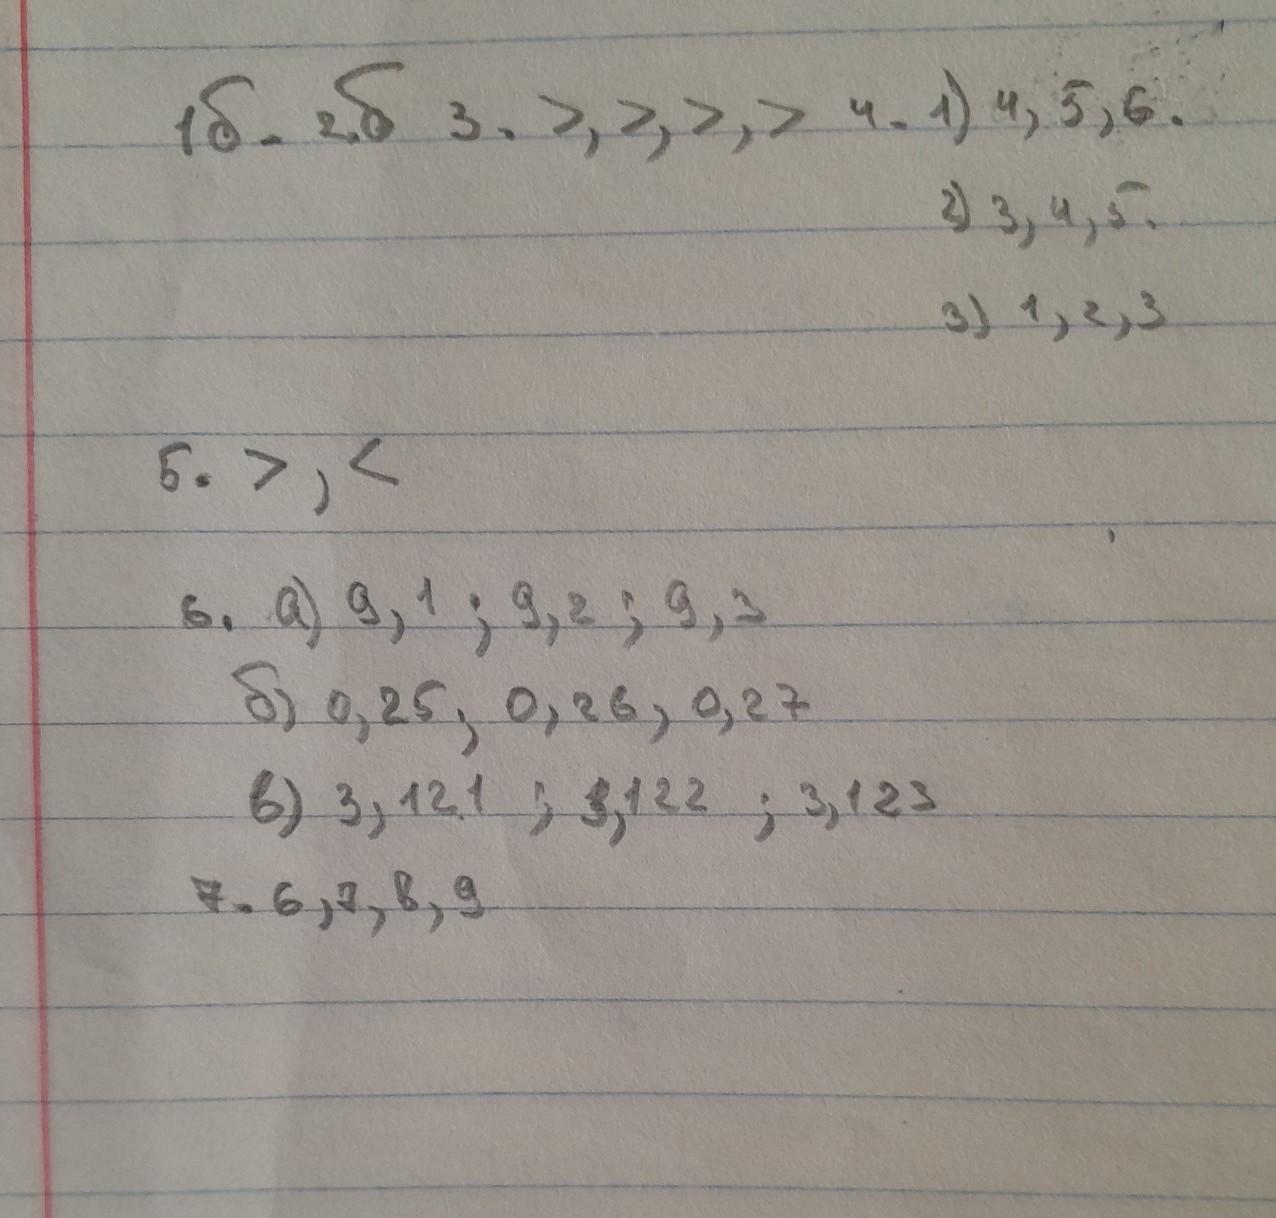 1б. 2.б 3. >, >, >, > 4. 1) 4, 5, 6.
2) 3, 4, 5.
3) 1, 2, 3
5. >, <
6. а) 9,1 ; 9,2 ; 9,3
б) 0,25; 0,26; 0,27
в) 3,121 ; 3,122 ; 3,123
7. 6, 7, 8, 9